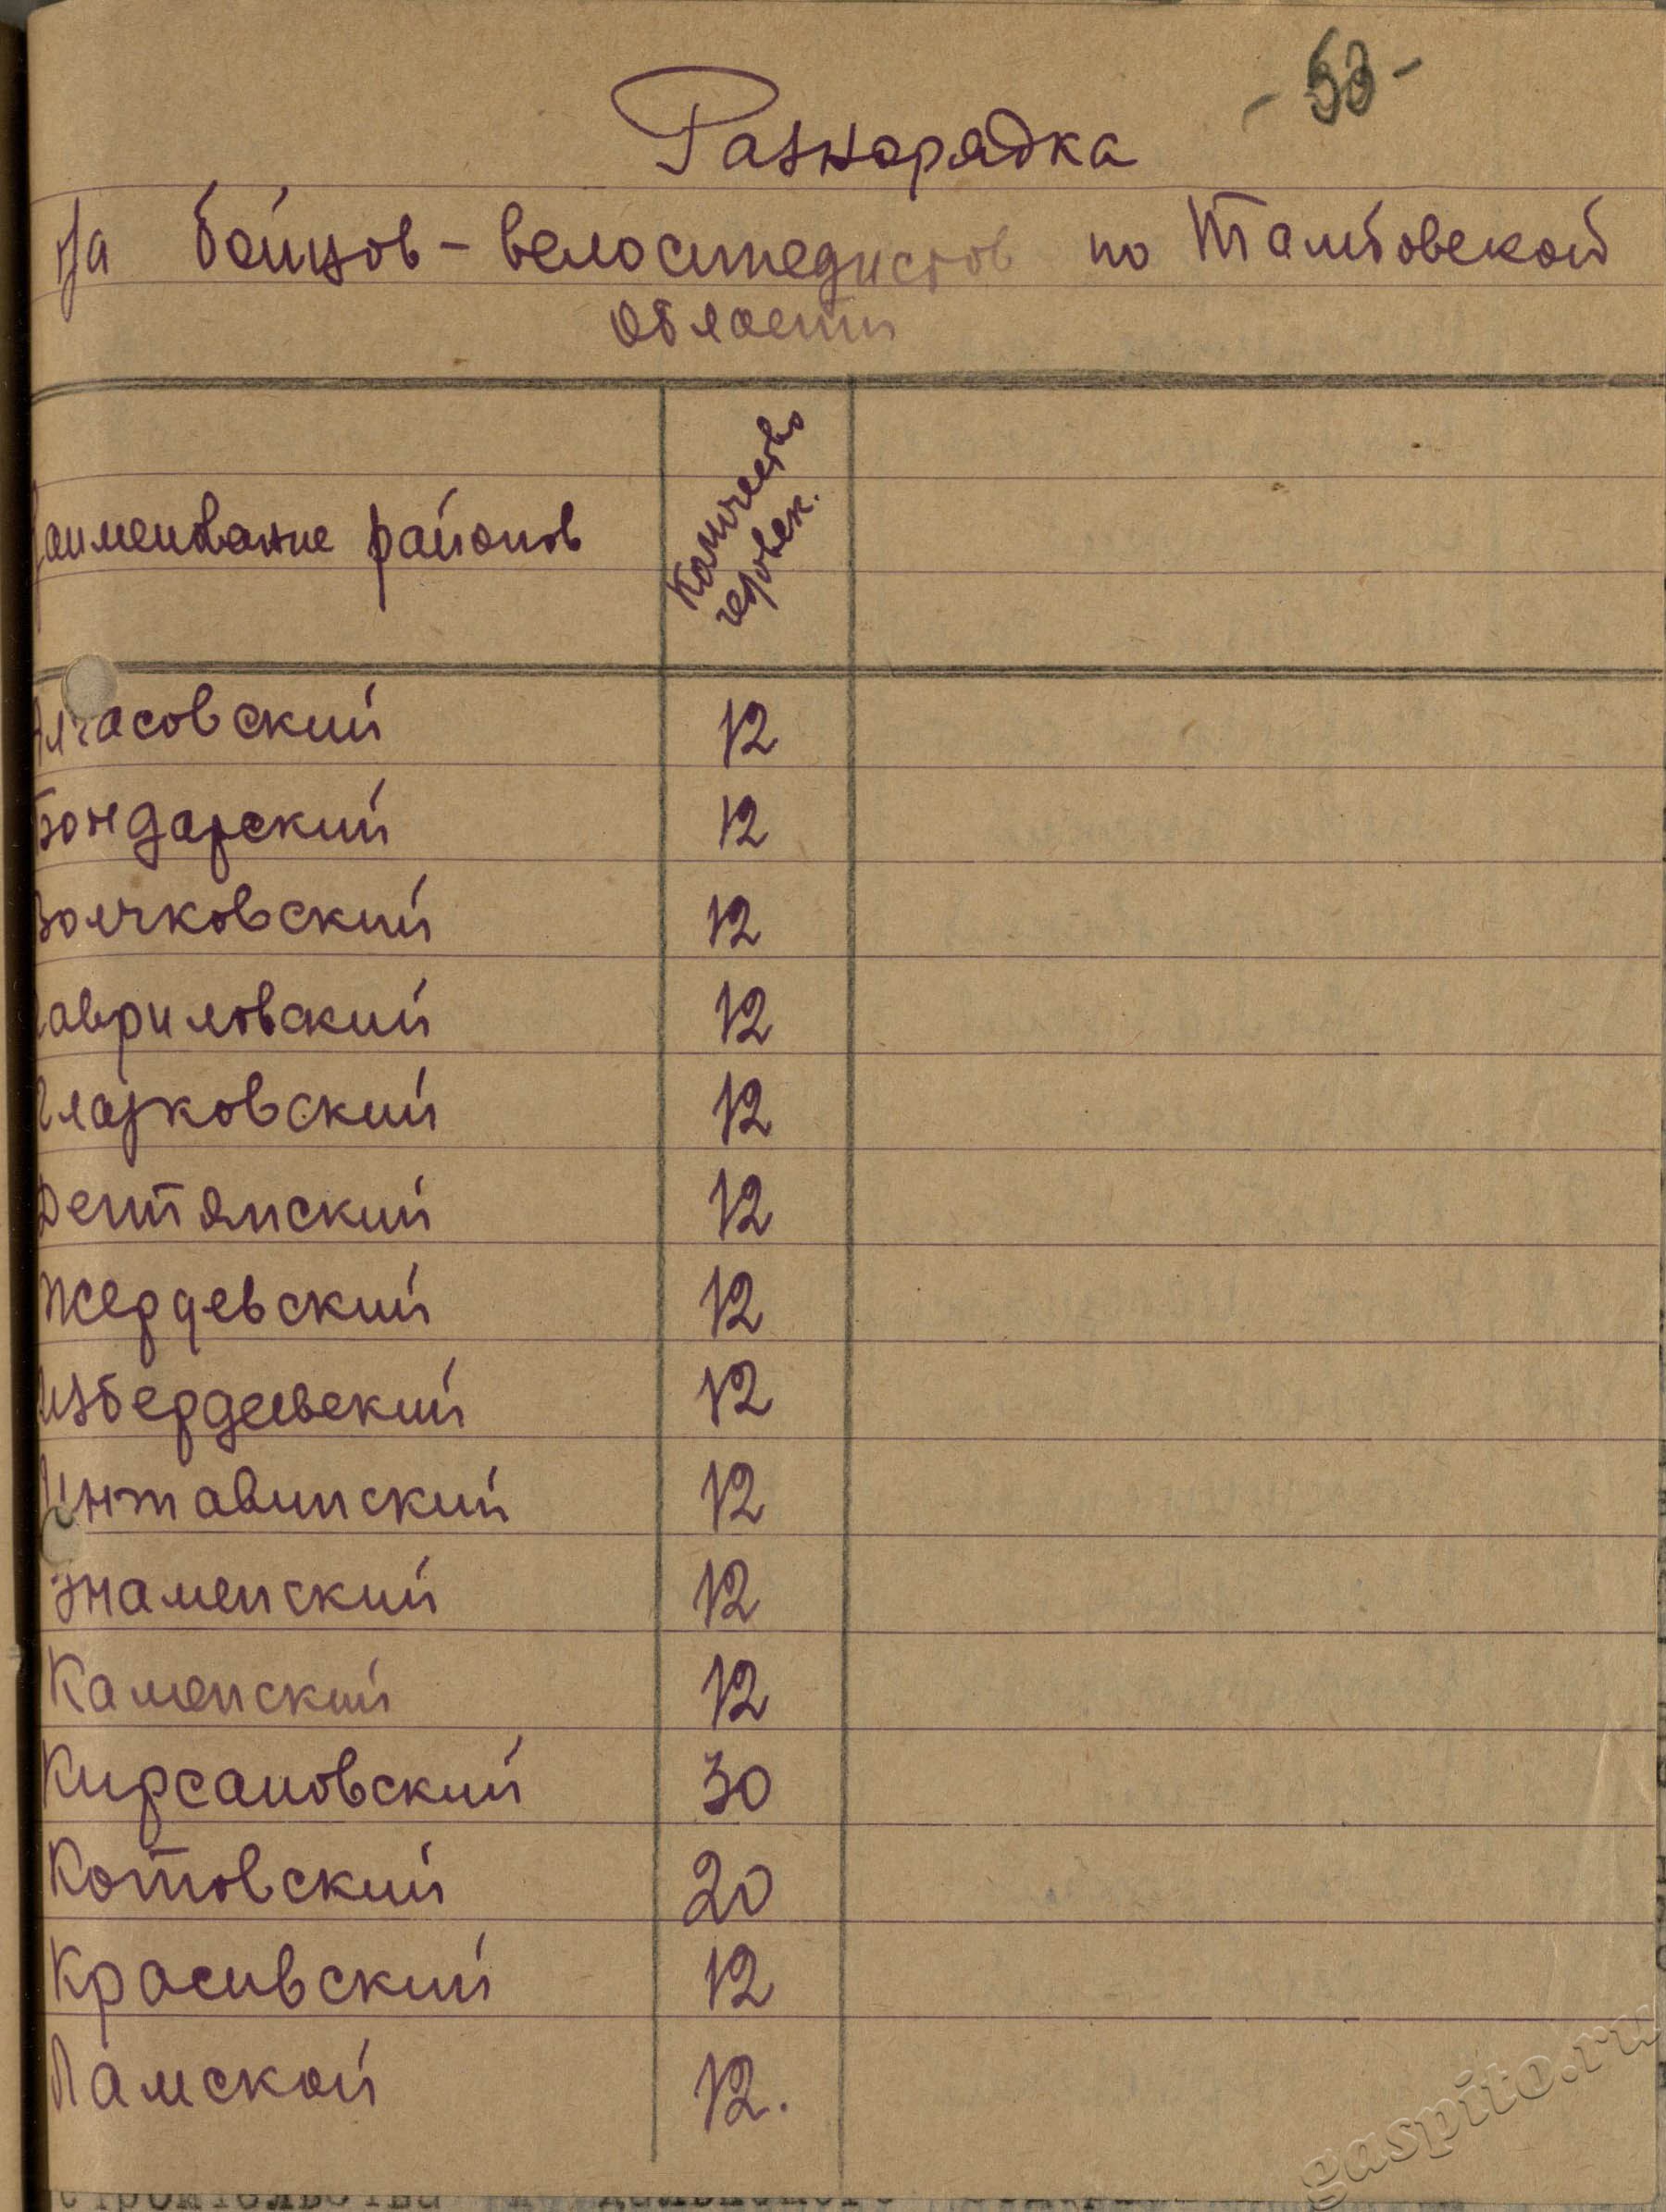 - 53 -
Разнорядка
На бойцов - велосипедистов по Тамбовской
области
Наименование районов
Количество
человек.
Алгасовский 12
Бондарский 12
Волчковский 12
Гавриловский 12
Глазковский 12
Дегтянский 12
Жердевский 12
Избердеевский 12
Инжавинский 12
Знаменский 12
Каменский 12
Кирсановский 30
Котовский 20
Красивский 12
Ламской 12.
gaspito.ru